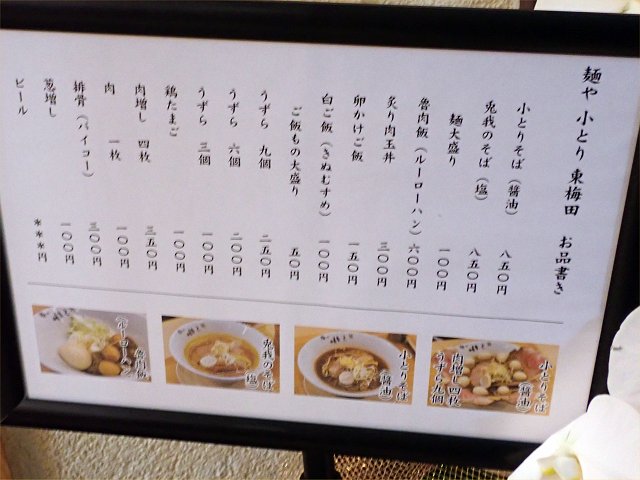 麺や 小とり 東梅田 お品書き
小とりそば（醤油） 八五〇円
兎我のそば（塩） 八五〇円
麺大盛り 一〇〇円
魯肉飯（ルーローハン） 六〇〇円
炙り肉玉丼 三〇〇円
卵かけご飯 一五〇円
白ご飯（きぬむすめ） 一〇〇円
ご飯もの大盛り 五〇円
うずら 九個 二五〇円
うずら 六個 二〇〇円
うずら 三個 一〇〇円
鶏たまご 一〇〇円
肉増し 四枚 三五〇円
肉 一枚 一〇〇円
排骨（パイコー） 三〇〇円
葱増し 一〇〇円
ビール ＊＊＊円
小とりそば
（醤油）
肉増し四枚
うずら九個
小とりそば
（醤油）
兎我のそば
（塩）
魯肉飯
（ルーローハン）